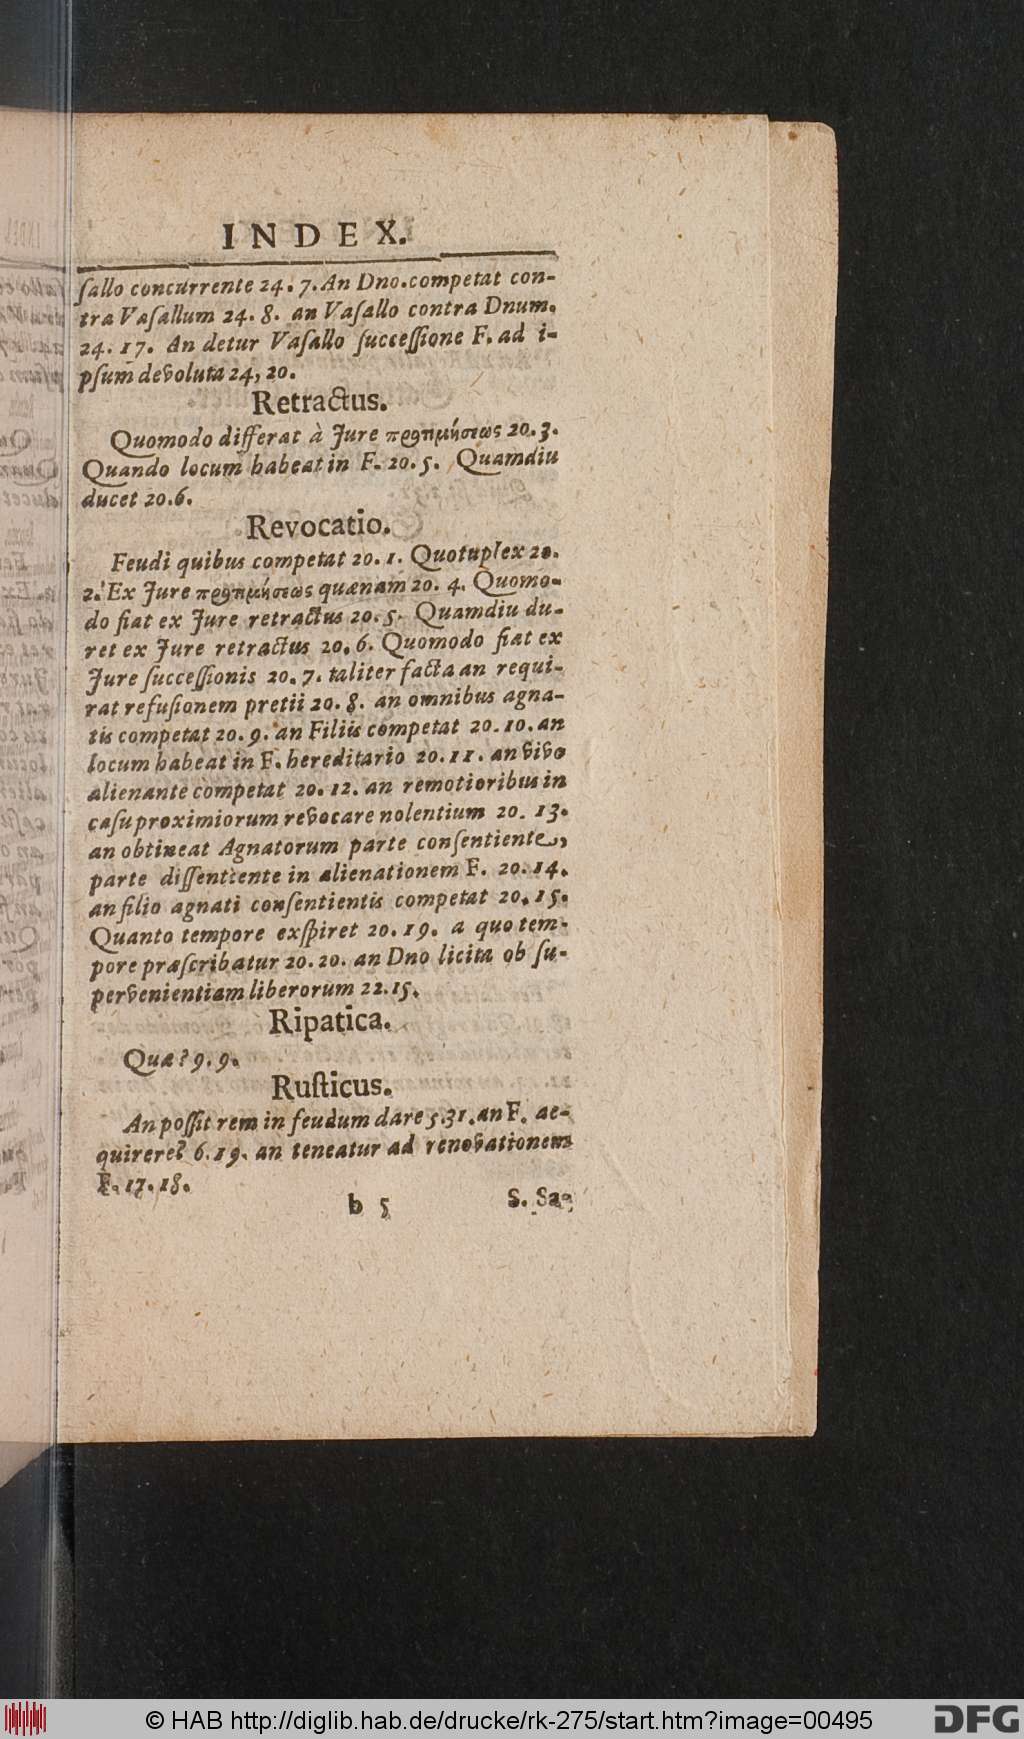 INDEX.
ſallo concurrente 24. 7. An Dno. competat con-
tra Vaſallum 24. 8. an Vaſallo contra Dnum.
24. 17. An detur Vaſallo ſucceſſione F. ad i-
pſum devoluta 24, 20.
Retractus.
Quomodo differat à Jure προτιμήσεως 20. 3.
Quando locum habeat in F. 20. 5. Quamdiu
ducet 20. 6.
Revocatio.
Feudi quibus competat 20. 1. Quotuplex 20.
2. Ex Jure προτιμήσεως quænam 20. 4. Quomo-
do fiat ex Jure retractus 20. 5. Quamdiu du-
ret ex Jure retractus 20. 6. Quomodo fiat ex
Jure ſucceſſionis 20. 7. taliter facta an requi-
rat refuſionem pretii 20. 8. an omnibus agna-
tis competat 20. 9. an Filiis competat 20. 10. an
locum habeat in F. hereditario 20. 11. an vivo
alienante competat 20. 12. an remotioribus in
caſu proximiorum revocare nolentium 20. 13.
an obtineat Agnatorum parte conſentiente,
parte diſſentiente in alienationem F. 20. 14.
an filio agnati conſentientis competat 20. 15.
Quanto tempore exſpiret 20. 19. a quo tem-
pore præſcribatur 20. 20. an Dno licita ob ſu-
pervenientiam liberorum 22. 15.
Ripatica.
Quæ? 9. 9.
Ruſticus.
An poſſit rem in feudum dare 5. 31. an F. ac-
quirere? 6. 19. an teneatur ad renovationem
F. 17. 18.
b 5 S. Sa-
© HAB http://diglib.hab.de/drucke/rk-275/start.htm?image=00495
DFG